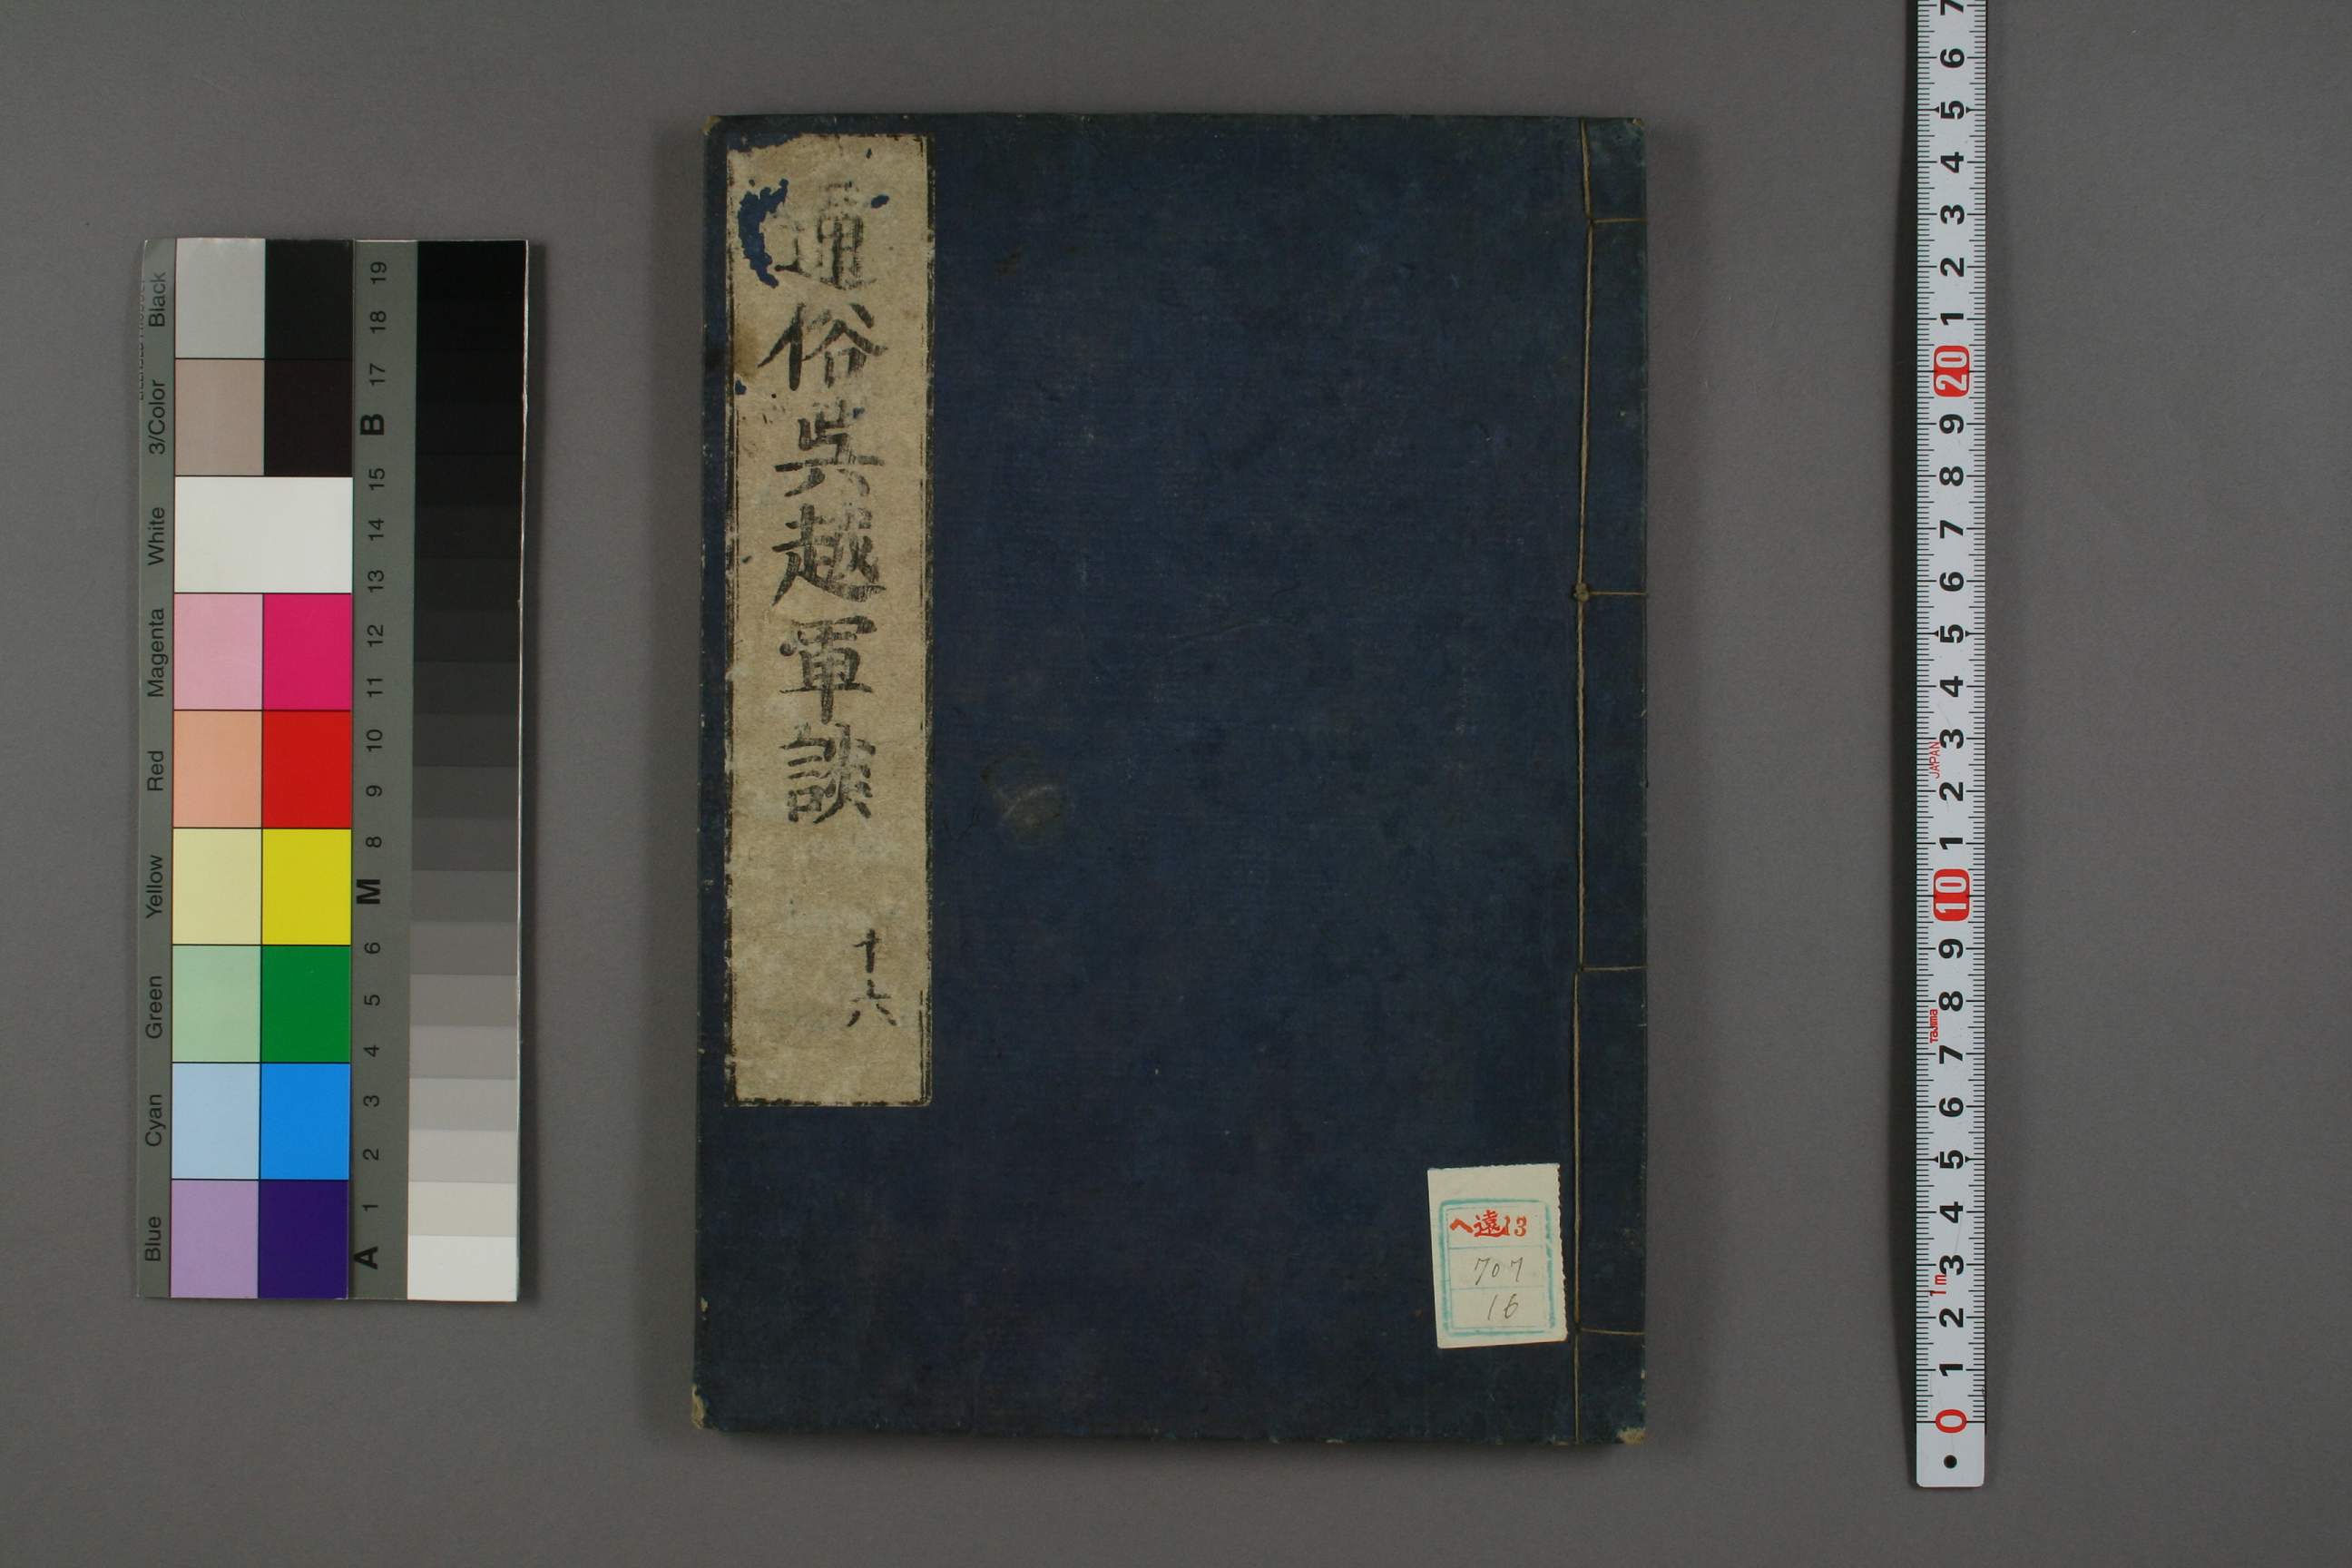 通俗呉越軍談
十六
ヘ遠13
707
16
Black
3/Color
White
Magenta
Red
Yellow
Green
Cyan
Blue
19
18
17
B
15
14
13
12
11
10
9
8
M
6
5
4
3
2
1
A
7
6
5
4
3
2
1
20
9
8
7
6
5
4
3
JAPAN
2
1
10
9
8
Tajima
7
6
5
4
3
1m
2
1
0